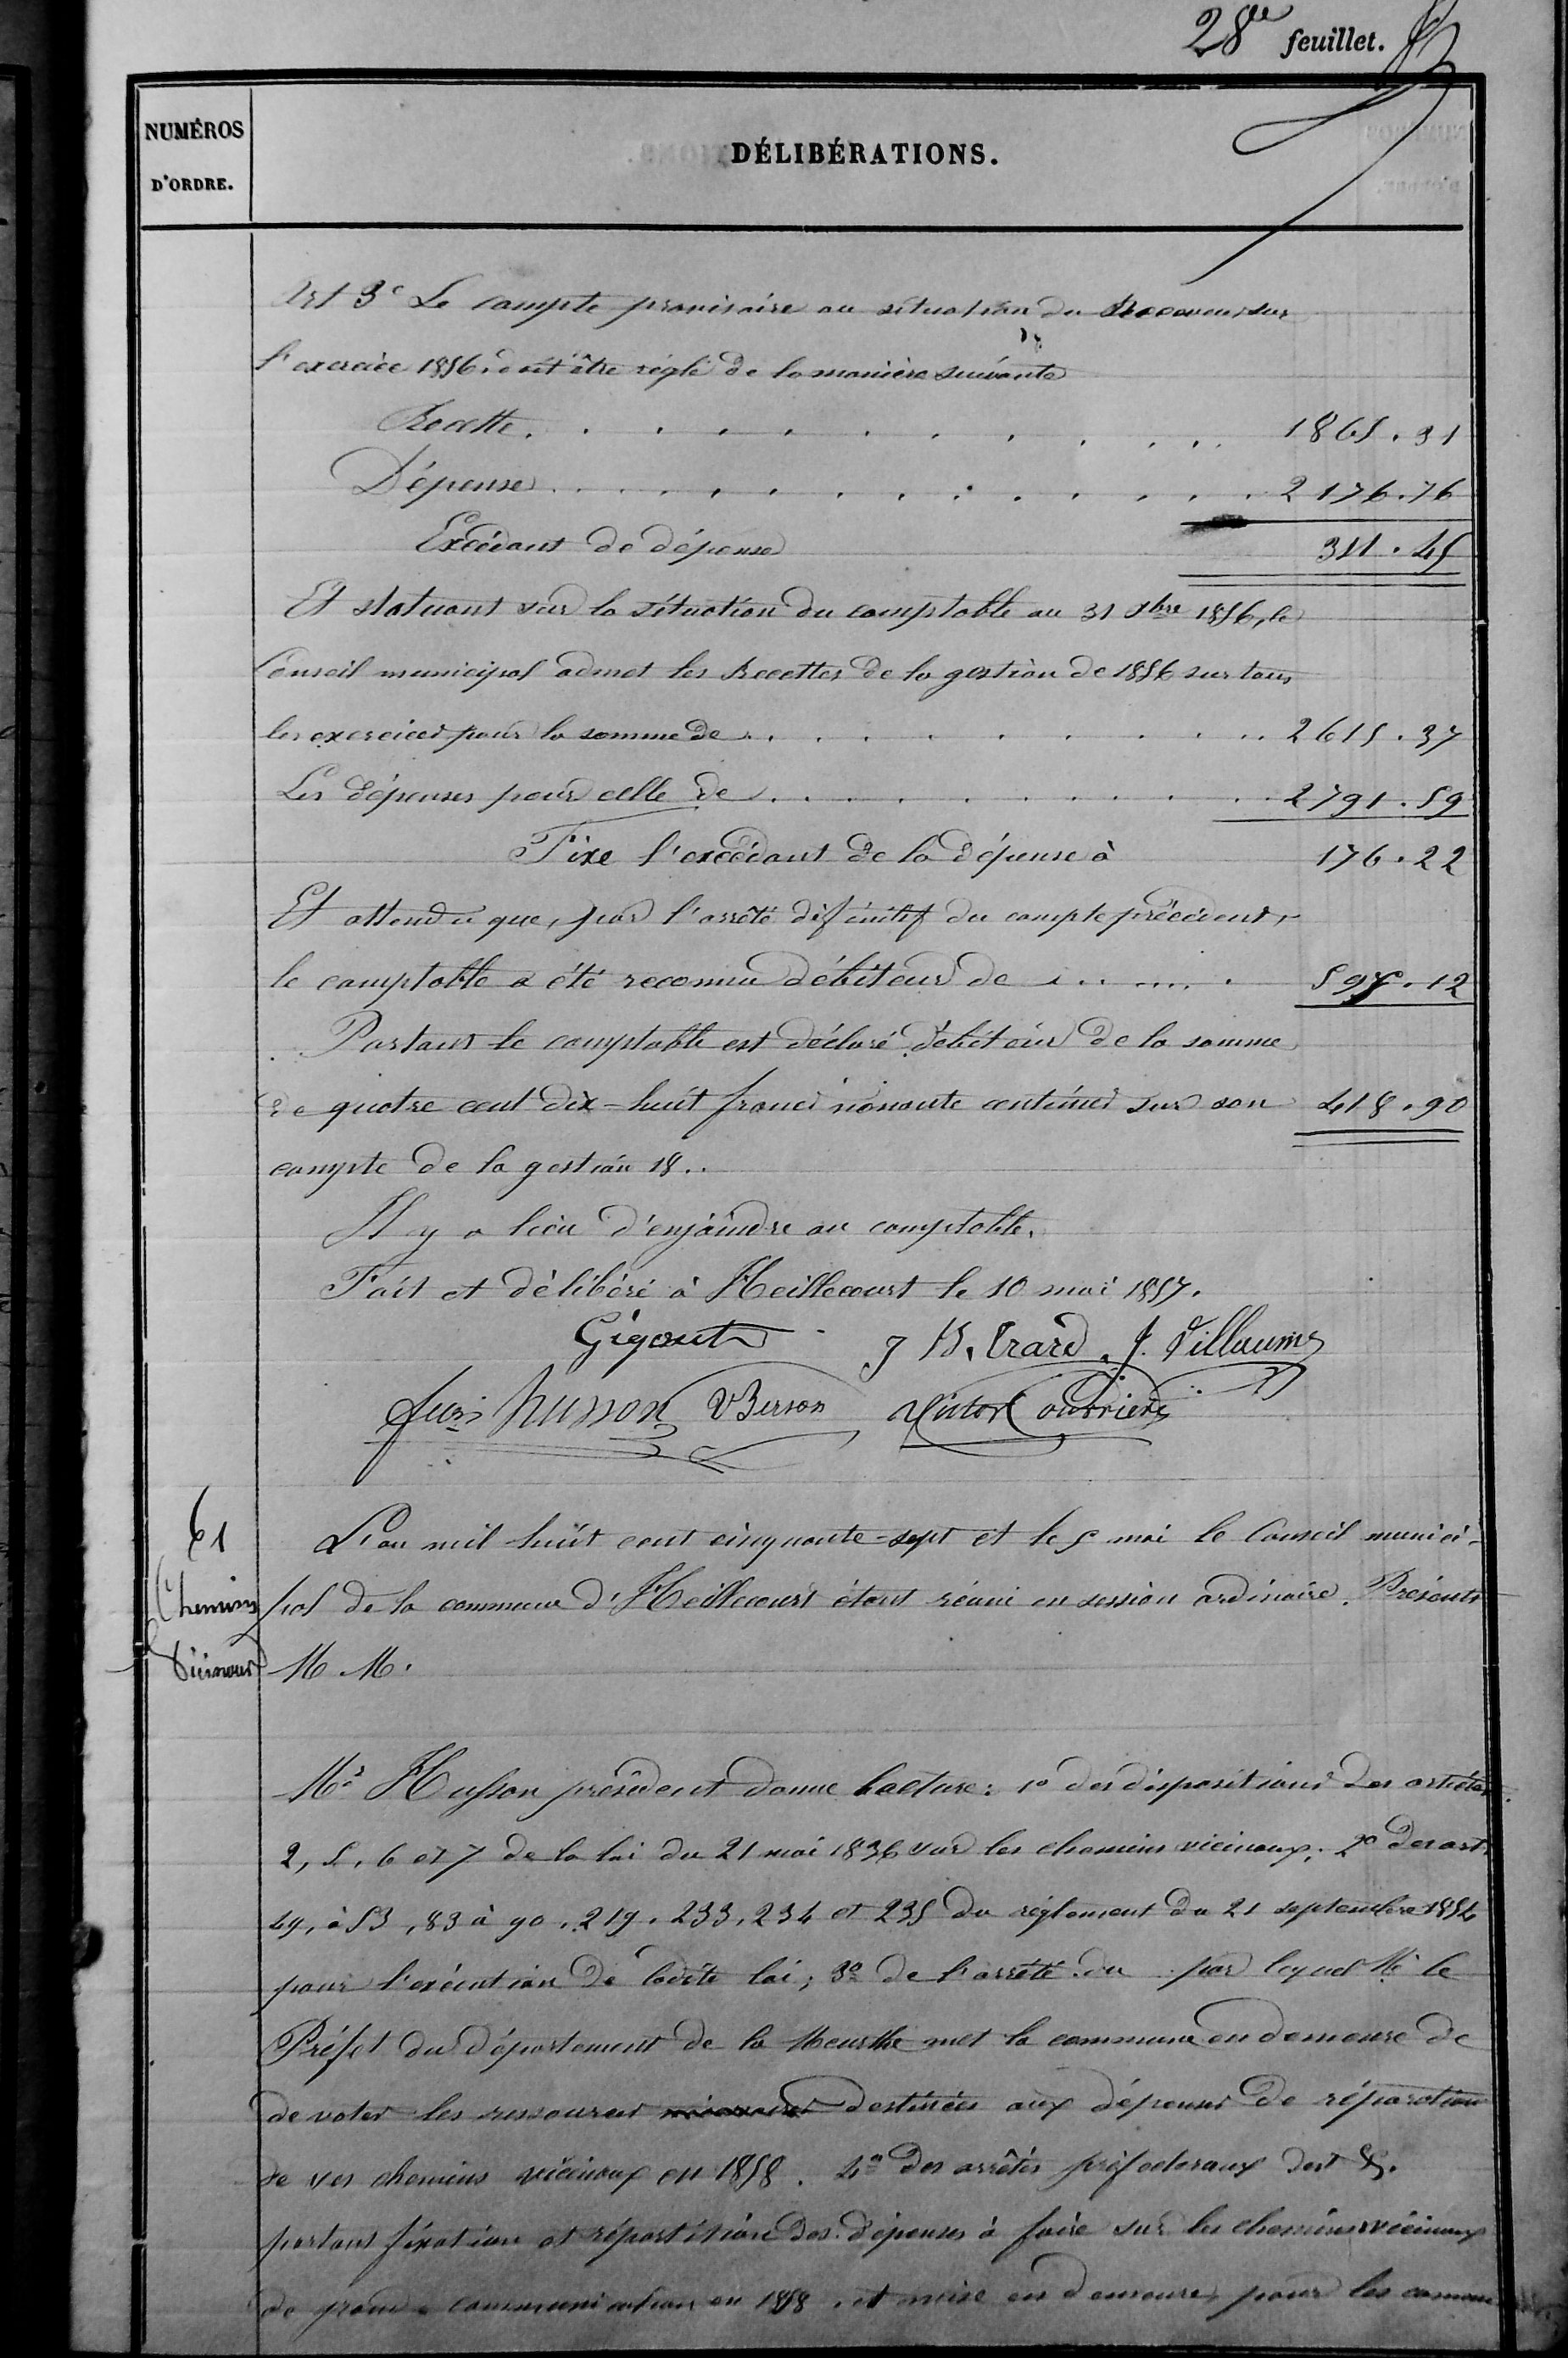 28e feuillet.
NUMÉROS
D'ORDRE.
DÉLIBÉRATIONS.
Art 3e Le compte provisoire ou situation du Receveur sur
l'exercice 1856. doit être réglé de la manière suivante
Recette. . . . . . . . . . . . 1865.31
Dépense . . . . . . . . . . . . 2176.76
Excédant de dépense 311.45
Et statuant sur la situation du comptable au 31 Xbre 1856, le
Conseil municipal admet les Recettes de la gestion de 1856 sur tous
les exercices pour la somme de . . . . . . . . . . 2615.37
Les dépenses pour celle de . . . . . . . . . . 2791.59
Fixe l'excédant de la dépense à 176.22
Et attendu que, par l'arrêté définitif du compte précédent,
le comptable a été reconnu débiteur de . . . . . . . 595.12
Partant le comptable est déclaré débiteur de la somme
de quatre cent dix-huit francs nonante centimes sur son 418.90
compte de la gestion 18..
Il y a lieu d'enjoindre au comptable.
Fait et délibéré à Heillecourt le 10 mai 1857.
Gigout J B. Erard. J. Villaume
Husson V Berson Victor Courrier
61
Chemins
Vicinaux
L'an mil huit cent cinquante-sept et le 5 mai le Conseil munici-
pal de la commune d'Heillecourt étant réuni en session ordinaire. Présents
M. M.
Mr Husson président donne lecture: 1o des dispositions des articles
2, 5, 6 et 7 de la loi du 21 mai 1836 sur les chemins vicinaux; 2o des art.
49, à 53, 83 à 90, 219, 233, 234 et 235 du réglement du 21 septembre 1854
pour l'exécution de ladite loi; 3o de l'arrêté du par lequel Mr le
Préfet du département de la Meurthe met la commune en demeure de
de voter les ressources destinées aux dépenses de réparation
de ses chemins vicinaux en 1858. 4o des arrêtés préfectoraux des &.
portant fixation et répartition des dépenses à faire sur les chemins vicinaux
de grande communication en 1858, et mise en demeure, pour les commu